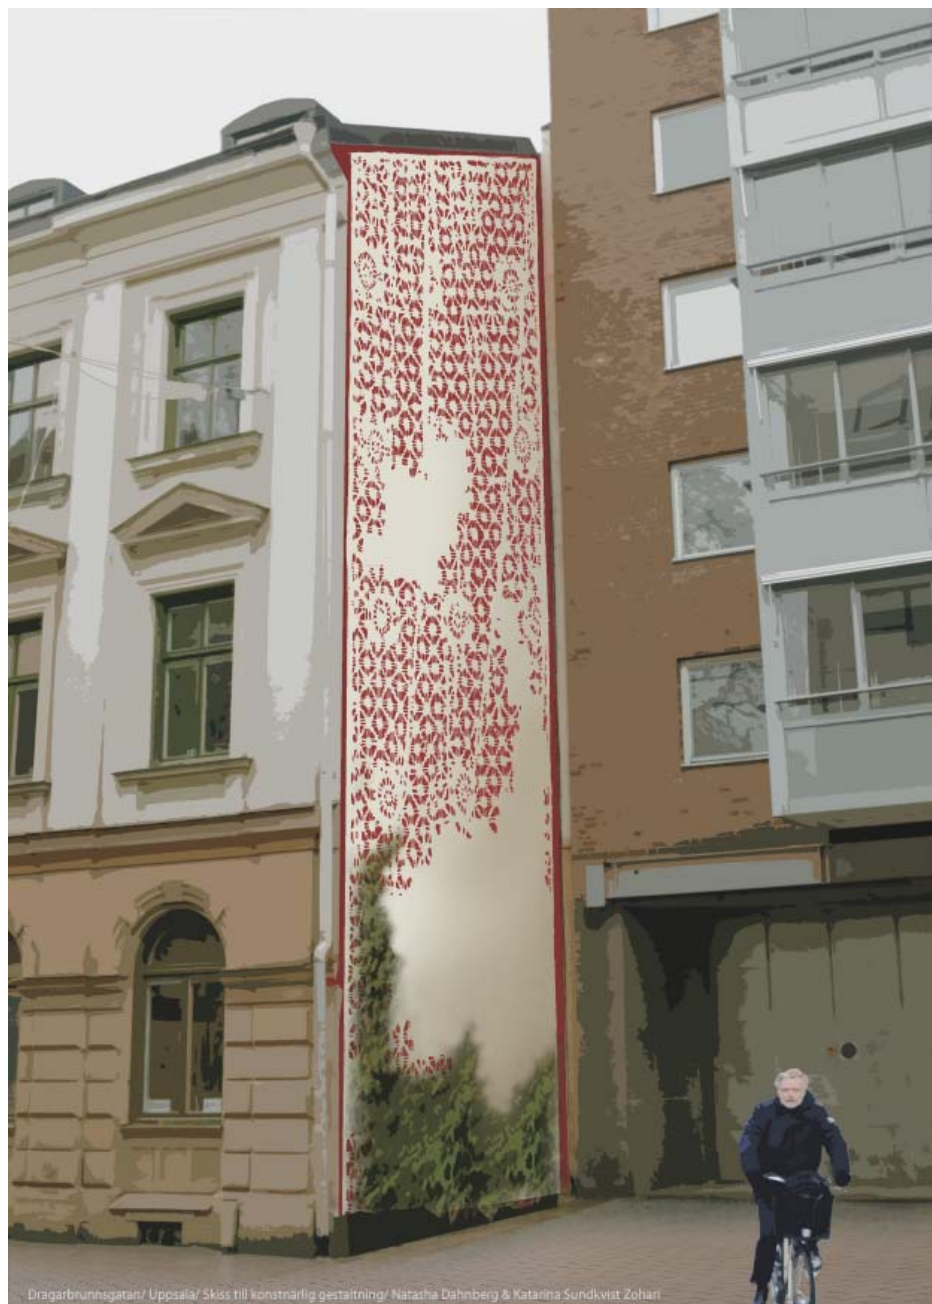 Dragarbrunnsgatan/ Uppsala/ Skiss till konstnärlig gestaltning/ Natasha Dahnberg & Katarina Sundkvist Zohari